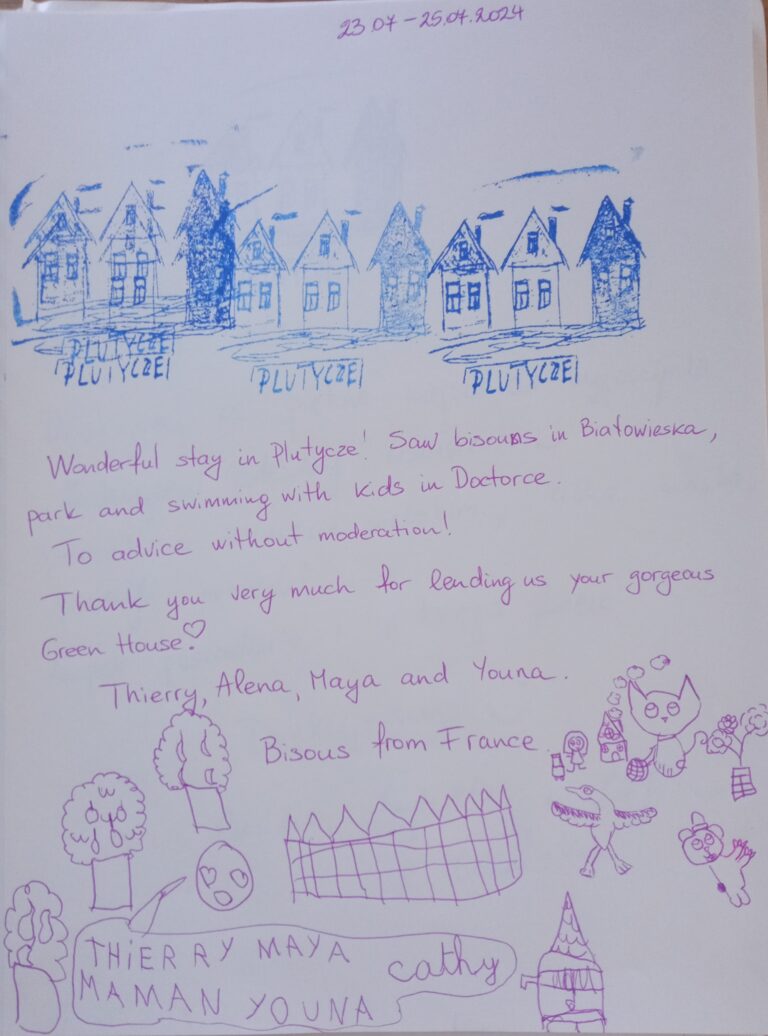 23.07 - 25.07.2024
PLUTYCZE
PLUTYCZE
PLUTYCZE
PLUTYCZE
Wonderful stay in Plutycze! Saw bisouns in Białowieska,
park and swimming with kids in Doctorce.
To advice without moderation!
Thank you very much for lending us your gorgeous
Green House!
Thierry, Alena, Maya and Youna.
Bisous from France.
THiERRY MAYA cathy
MAMAN YOUNA